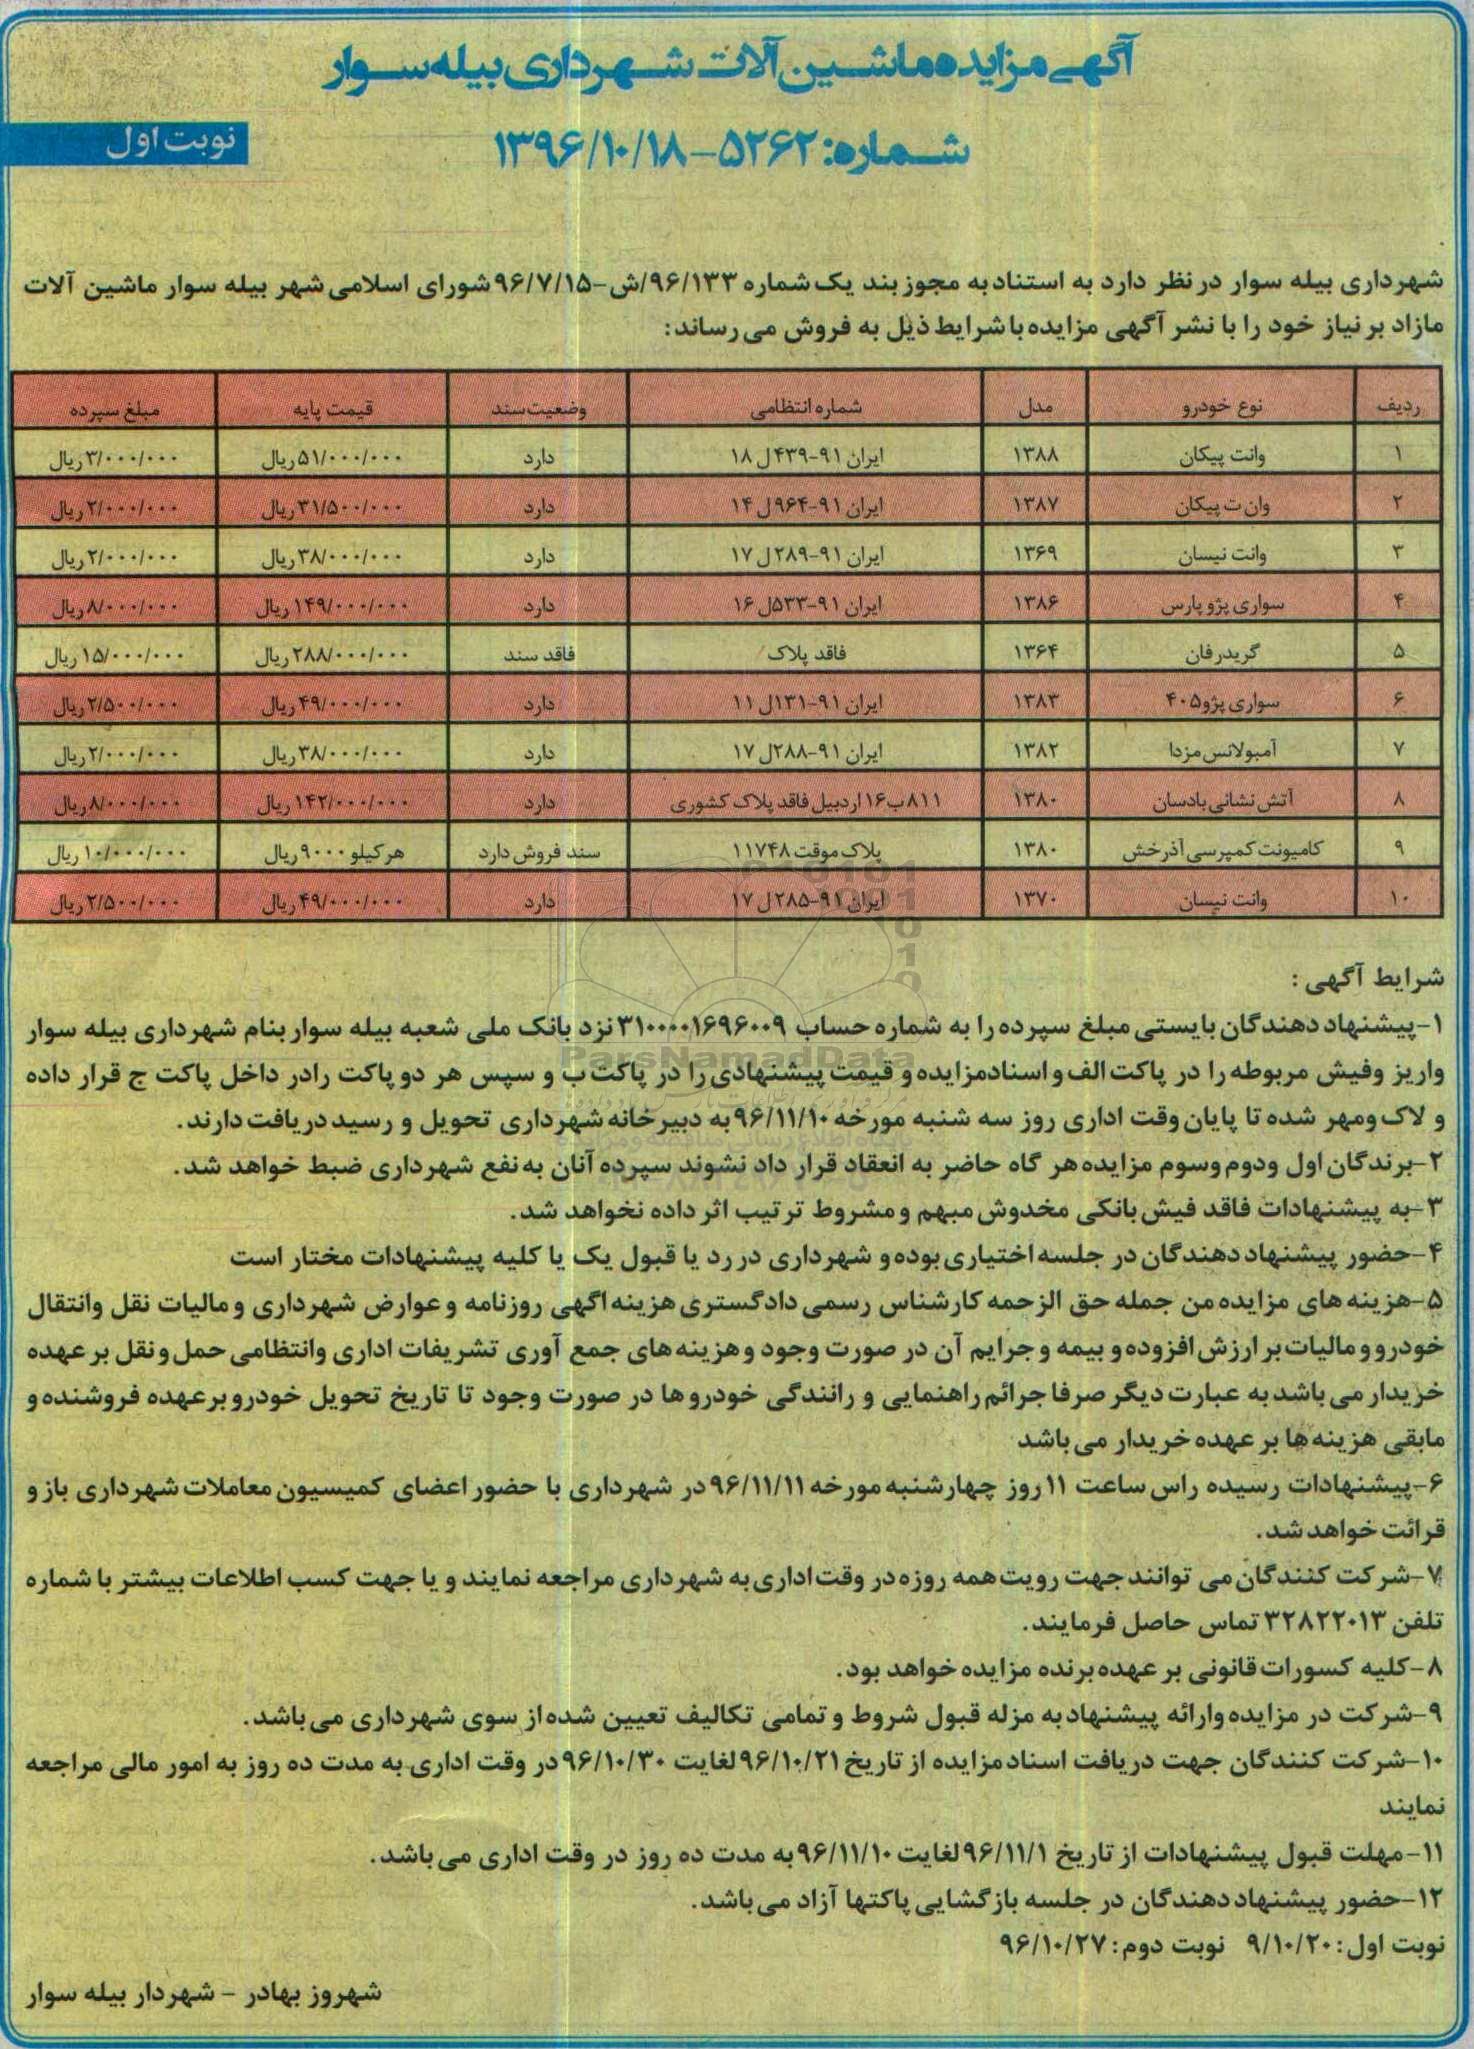 آگهی مزایده ماشین آلات شهرداری بیله سوار
شماره: ۵۲۶۲-۱۳۹۶/۱۰/۱۸
نوبت اول
شهرداری بیله سوار در نظر دارد به استناد به مجوز بند یک شماره ۹۶/۱۳۳/ش-۹۶/۷/۱۵ شورای اسلامی شهر بیله سوار ماشین آلات
مازاد بر نیاز خود را با نشر آگهی مزایده با شرایط ذیل به فروش می رساند:
ردیف نوع خودرو مدل شماره انتظامی وضعیت سند قیمت پایه مبلغ سپرده
۱ وانت پیکان ۱۳۸۸ ایران ۹۱-۴۳۹ل۱۸ دارد ۵۱/۰۰۰/۰۰۰ریال ۳/۰۰۰/۰۰۰ریال
۲ وان ت پیکان ۱۳۸۷ ایران ۹۱-۹۶۴ل۱۴ دارد ۳۱/۵۰۰/۰۰۰ریال ۲/۰۰۰/۰۰۰ریال
۳ وانت نیسان ۱۳۶۹ ایران ۹۱-۲۸۹ل۱۷ دارد ۳۸/۰۰۰/۰۰۰ریال ۲/۰۰۰/۰۰۰ریال
۴ سواری پژو پارس ۱۳۸۶ ایران ۹۱-۵۳۳ل۱۶ دارد ۱۴۹/۰۰۰/۰۰۰ریال ۸/۰۰۰/۰۰۰ریال
۵ گریدر فان ۱۳۶۴ فاقد پلاک فاقد سند ۲۸۸/۰۰۰/۰۰۰ریال ۱۵/۰۰۰/۰۰۰ریال
۶ سواری پژو۴۰۵ ۱۳۸۳ ایران ۹۱-۱۳۱ل۱۱ دارد ۴۹/۰۰۰/۰۰۰ریال ۲/۵۰۰/۰۰۰ریال
۷ آمبولانس مزدا ۱۳۸۲ ایران ۹۱-۲۸۸ل۱۷ دارد ۳۸/۰۰۰/۰۰۰ریال ۲/۰۰۰/۰۰۰ریال
۸ آتش نشانی بادسان ۱۳۸۰ ۸۱۱ب۱۶اردبیل فاقد پلاک کشوری دارد ۱۴۲/۰۰۰/۰۰۰ریال ۸/۰۰۰/۰۰۰ریال
۹ کامیونت کمپرسی آذرخش ۱۳۸۰ پلاک موقت ۱۱۷۴۸ سند فروش دارد هرکیلو ۹۰۰۰ریال ۱۰/۰۰۰/۰۰۰ریال
۱۰ وانت نیسان ۱۳۷۰ ایران ۹۱-۲۸۵ل۱۷ دارد ۴۹/۰۰۰/۰۰۰ریال ۲/۵۰۰/۰۰۰ریال
ParsNamadData
شرایط آگهی :
۱-پیشنهاد دهندگان بایستی مبلغ سپرده را به شماره حساب ۳۱۰۰۰۰۱۶۹۶۰۰۹نزد بانک ملی شعبه بیله سوار بنام شهرداری بیله سوار
واریز وفیش مربوطه را در پاکت الف و اسنادمزایده و قیمت پیشنهادی را در پاکت ب و سپس هر دو پاکت رادر داخل پاکت ج قرار داده
و لاک ومهر شده تا پایان وقت اداری روز سه شنبه مورخه ۹۶/۱۱/۱۰به دبیرخانه شهرداری تحویل و رسید دریافت دارند.
۲-برندگان اول ودوم وسوم مزایده هر گاه حاضر به انعقاد قرار داد نشوند سپرده آنان به نفع شهرداری ضبط خواهد شد.
۳-به پیشنهادات فاقد فیش بانکی مخدوش مبهم و مشروط ترتیب اثر داده نخواهد شد.
۴-حضور پیشنهاد دهندگان در جلسه اختیاری بوده و شهرداری در رد یا قبول یک یا کلیه پیشنهادات مختار است
۵-هزینه های مزایده من جمله حق الزحمه کارشناس رسمی دادگستری هزینه اگهی روزنامه و عوارض شهرداری و مالیات نقل وانتقال
خودرو و مالیات بر ارزش افزوده و بیمه و جرایم آن در صورت وجود و هزینه های جمع آوری تشریفات اداری وانتظامی حمل و نقل بر عهده
خریدار می باشد به عبارت دیگر صرفا جرائم راهنمایی و رانندگی خودرو ها در صورت وجود تا تاریخ تحویل خودرو برعهده فروشنده و
مابقی هزینه ها بر عهده خریدار می باشد
۶-پیشنهادات رسیده راس ساعت ۱۱ روز چهارشنبه مورخه ۹۶/۱۱/۱۱در شهرداری با حضور اعضای کمیسیون معاملات شهرداری باز و
قرائت خواهد شد.
۷-شرکت کنندگان می توانند جهت رویت همه روزه در وقت اداری به شهرداری مراجعه نمایند و یا جهت کسب اطلاعات بیشتر با شماره
تلفن ۳۲۸۲۲۰۱۳ تماس حاصل فرمایند.
۸-کلیه کسورات قانونی بر عهده برنده مزایده خواهد بود.
۹-شرکت در مزایده وارائه پیشنهاد به مزله قبول شروط و تمامی تکالیف تعیین شده از سوی شهرداری می باشد.
۱۰-شرکت کنندگان جهت دریافت اسناد مزایده از تاریخ ۹۶/۱۰/۲۱لغایت ۹۶/۱۰/۳۰در وقت اداری به مدت ده روز به امور مالی مراجعه
نمایند
۱۱-مهلت قبول پیشنهادات از تاریخ ۹۶/۱۱/۱لغایت ۹۶/۱۱/۱۰به مدت ده روز در وقت اداری می باشد.
۱۲-حضور پیشنهاد دهندگان در جلسه بازگشایی پاکتها آزاد می باشد.
نوبت اول: ۹/۱۰/۲۰ نوبت دوم: ۹۶/۱۰/۲۷
شهروز بهادر - شهردار بیله سوار